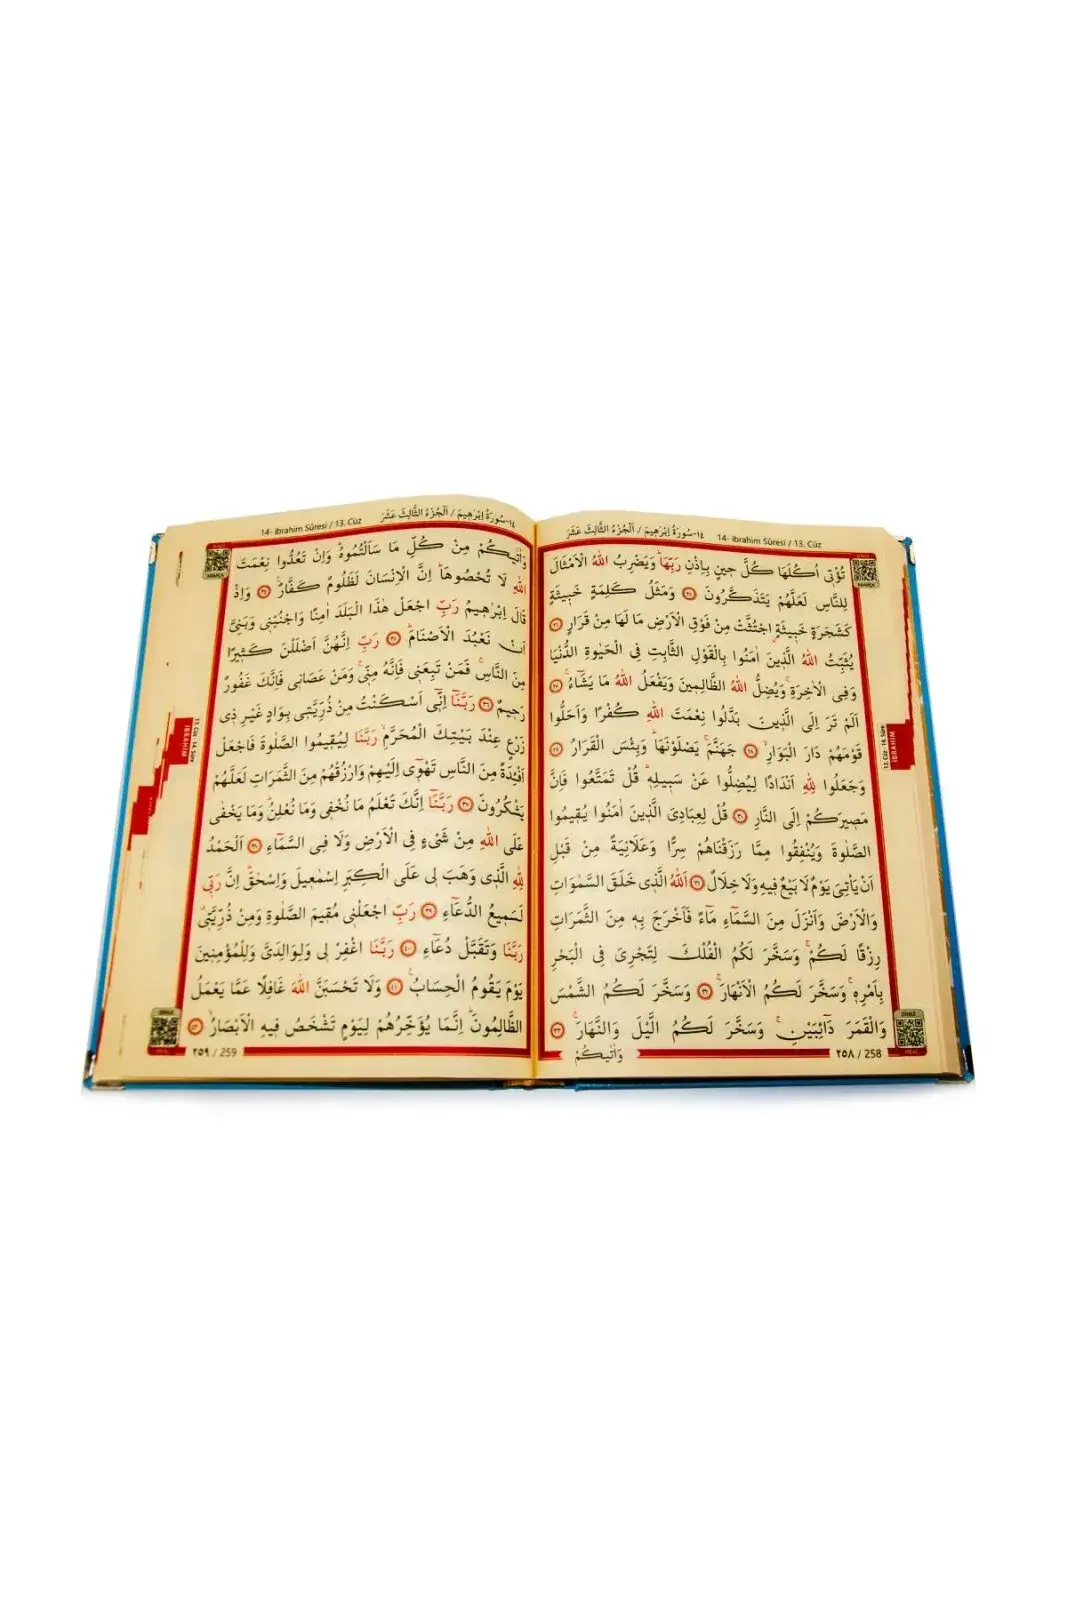 ١٤-سُورَةُ اِبْرٰه۪يمَ / اَلْجُزْءُ الثَّالِثَ عَشَرَ 14- İbrahim Sûresi / 13. Cüz
تُؤْت۪ٓي اُكُلَهَا كُلَّ ح۪ينٍ بِاِذْنِ رَبِّهَاۜ وَيَضْرِبُ اللّٰهُ الْاَمْثَالَ
لِلنَّاسِ لَعَلَّهُمْ يَتَذَكَّرُونَ ﴿٢٥﴾ وَمَثَلُ كَلِمَةٍ خَب۪يثَةٍ
كَشَجَرَةٍ خَب۪يثَةٍۨ اجْتُثَّتْ مِنْ فَوْقِ الْاَرْضِ مَا لَهَا مِنْ قَرَارٍ ﴿٢٦﴾
يُثَبِّتُ اللّٰهُ الَّذ۪ينَ اٰمَنُوا بِالْقَوْلِ الثَّابِتِ فِي الْحَيٰوةِ الدُّنْيَا
وَفِي الْاٰخِرَةِۚ وَيُضِلُّ اللّٰهُ الظَّالِم۪ينَ وَيَفْعَلُ اللّٰهُ مَا يَشَٓاءُ۟ ﴿٢٧﴾
اَلَمْ تَرَ اِلَى الَّذ۪ينَ بَدَّلُوا نِعْمَتَ اللّٰهِ كُفْرًا وَاَحَلُّوا
قَوْمَهُمْ دَارَ الْبَوَارِۙ ﴿٢٨﴾ جَهَنَّمَۚ يَصْلَوْنَهَاۜ وَبِئْسَ الْقَرَارُ ﴿٢٩﴾
وَجَعَلُوا لِلّٰهِ اَنْدَادًا لِيُضِلُّوا عَنْ سَب۪يلِه۪ۜ قُلْ تَمَتَّعُوا فَاِنَّ
مَص۪يرَكُمْ اِلَى النَّارِ ﴿٣٠﴾ قُلْ لِعِبَادِيَ الَّذ۪ينَ اٰمَنُوا يُق۪يمُوا
الصَّلٰوةَ وَيُنْفِقُوا مِمَّا رَزَقْنَاهُمْ سِرًّا وَعَلَانِيَةً مِنْ قَبْلِ
اَنْ يَأْتِيَ يَوْمٌ لَا بَيْعٌ ف۪يهِ وَلَا خِلَالٌ ﴿٣١﴾ اَللّٰهُ الَّذ۪ي خَلَقَ السَّمٰوَاتِ
وَالْاَرْضَ وَاَنْزَلَ مِنَ السَّمَٓاءِ مَٓاءً فَاَخْرَجَ بِه۪ مِنَ الثَّمَرَاتِ
رِزْقًا لَكُمْۚ وَسَخَّرَ لَكُمُ الْفُلْكَ لِتَجْرِيَ فِي الْبَحْرِ
بِاَمْرِه۪ۚ وَسَخَّرَ لَكُمُ الْاَنْهَارَۚ ﴿٣٢﴾ وَسَخَّرَ لَكُمُ الشَّمْسَ
وَالْقَمَرَ دَٓائِبَيْنِۚ وَسَخَّرَ لَكُمُ الَّيْلَ وَالنَّهَارَۚ ﴿٣٣﴾
وَاٰتٰيكُمْ
٢٥٨ / 258
13. Cüz - 14. Sûre
İBRAHİM
14- İbrahim Sûresi / 13. Cüz ١٤-سُورَةُ اِبْرٰه۪يمَ / اَلْجُزْءُ الثَّالِثَ عَشَرَ
وَاٰتٰيكُمْ مِنْ كُلِّ مَا سَاَلْتُمُوهُۜ وَاِنْ تَعُدُّوا نِعْمَتَ
اللّٰهِ لَا تُحْصُوهَاۜ اِنَّ الْاِنْسَانَ لَظَلُومٌ كَفَّارٌ۟ ﴿٣٤﴾ وَاِذْ
قَالَ اِبْرٰه۪يمُ رَبِّ اجْعَلْ هٰذَا الْبَلَدَ اٰمِنًا وَاجْنُبْن۪ي وَبَنِيَّ
اَنْ نَعْبُدَ الْاَصْنَامَۜ ﴿٣٥﴾ رَبِّ اِنَّهُنَّ اَضْلَلْنَ كَث۪يرًا
مِنَ النَّاسِۚ فَمَنْ تَبِعَن۪ي فَاِنَّهُ مِنّ۪يۚ وَمَنْ عَصَان۪ي فَاِنَّكَ غَفُورٌ
رَح۪يمٌ ﴿٣٦﴾ رَبَّنَٓا اِنّ۪ٓي اَسْكَنْتُ مِنْ ذُرِّيَّت۪ي بِوَادٍ غَيْرِ ذ۪ي
زَرْعٍ عِنْدَ بَيْتِكَ الْمُحَرَّمِۙ رَبَّنَا لِيُق۪يمُوا الصَّلٰوةَ فَاجْعَلْ
اَفْـِٔدَةً مِنَ النَّاسِ تَهْو۪ٓي اِلَيْهِمْ وَارْزُقْهُمْ مِنَ الثَّمَرَاتِ لَعَلَّهُمْ
يَشْكُرُونَ ﴿٣٧﴾ رَبَّنَٓا اِنَّكَ تَعْلَمُ مَا نُخْف۪ي وَمَا نُعْلِنُۜ وَمَا يَخْفٰى
عَلَى اللّٰهِ مِنْ شَيْءٍ فِي الْاَرْضِ وَلَا فِي السَّمَٓاءِ ﴿٣٨﴾ اَلْحَمْدُ
لِلّٰهِ الَّذ۪ي وَهَبَ ل۪ي عَلَى الْكِبَرِ اِسْمٰع۪يلَ وَاِسْحٰقَۜ اِنَّ رَبّ۪ي
لَسَم۪يعُ الدُّعَٓاءِ ﴿٣٩﴾ رَبِّ اجْعَلْن۪ي مُق۪يمَ الصَّلٰوةِ وَمِنْ ذُرِّيَّت۪يۗ
رَبَّنَا وَتَقَبَّلْ دُعَٓاءِ ﴿٤٠﴾ رَبَّنَا اغْفِرْ ل۪ي وَلِوَالِدَيَّ وَلِلْمُؤْمِن۪ينَ
يَوْمَ يَقُومُ الْحِسَابُ۟ ﴿٤١﴾ وَلَا تَحْسَبَنَّ اللّٰهَ غَافِلًا عَمَّا يَعْمَلُ
الظَّالِمُونَۜ اِنَّمَا يُؤَخِّرُهُمْ لِيَوْمٍ تَشْخَصُ ف۪يهِ الْاَبْصَارُۙ ﴿٤٢﴾
٢٥٩ / 259
13. Cüz - 14. Sûre
İBRAHİM